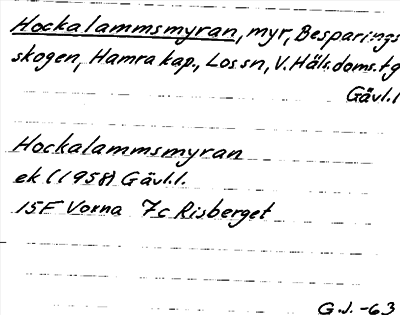 Hockalammsmyran, myr, Besparings
skogen, Hamra kap., Los sn, V. Häls. doms. tg
Gävl. l
Hockalammsmyran
ek (1958) Gävl. l.
15F Vorna 7c Risberget
G.J. -63